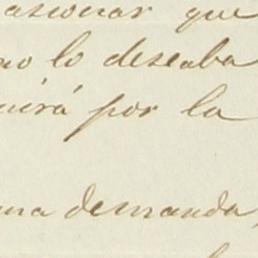 asionar que
no lo deseaba
uirá por la
una demanda,